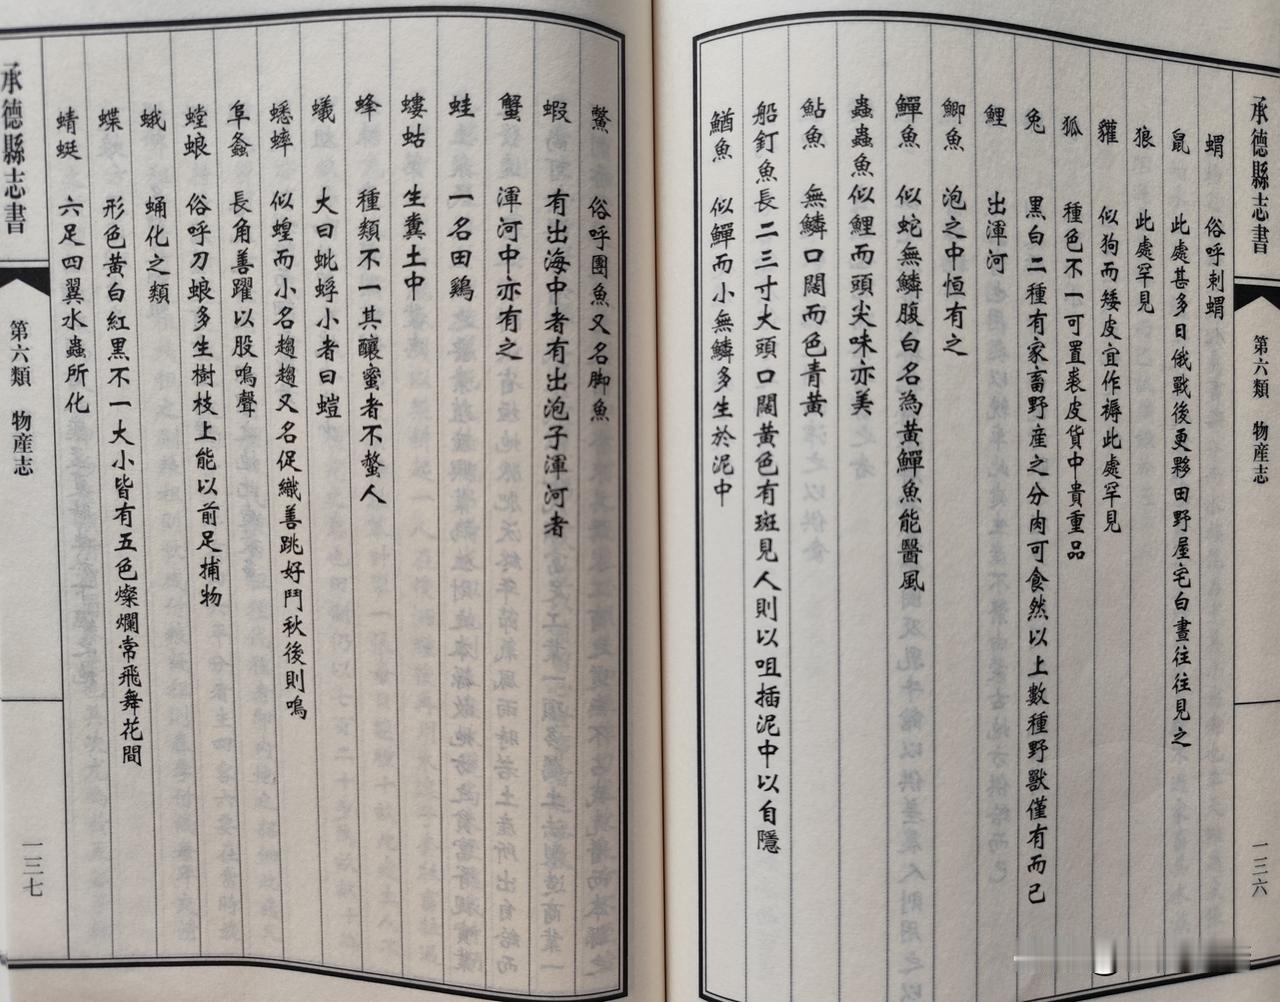 承德縣志書
第六類 物産志
一三六
蝟 俗呼刺蝟
鼠 此處甚多日俄戰後更夥田野屋宅白晝往往見之
狼 此處罕見
貛 似狗而矮皮宜作褥此處罕見
狐 種色不一可置裘皮貨中貴重品
兔 黑白二種有家畜野産之分肉可食然以上數種野獸僅有而已
鯉 出渾河
鯽魚 泡之中恒有之
鱓魚 似蛇無鱗腹白名為黃鱓魚能醫風
蟲蟲魚 似鯉而頭尖味亦美
鮎魚 無鱗口闊而色青黃
船釘魚 長二三寸大頭口闊黃色有斑見人則以咀插泥中以自隱
鰌魚 似鱓而小無鱗多生於泥中
鱉 俗呼團魚又名脚魚
蝦 有出海中者有出泡子渾河者
蟹 渾河中亦有之
蛙 一名田鷄
螻蛄 生糞土中
蜂 種類不一其釀蜜者不螫人
蟻 大曰蚍蜉小者曰螘
蟋蟀 似蝗而小名趨趨又名促織善跳好鬥秋後則鳴
阜螽 長角善躍以股鳴聲
螳蜋 俗呼刀蜋多生樹枝上能以前足捕物
蛾 蛹化之類
蝶 形色黃白紅黑不一大小皆有五色燦爛常飛舞花間
蜻蜓 六足四翼水蟲所化
承德縣志書
第六類 物産志
一三七